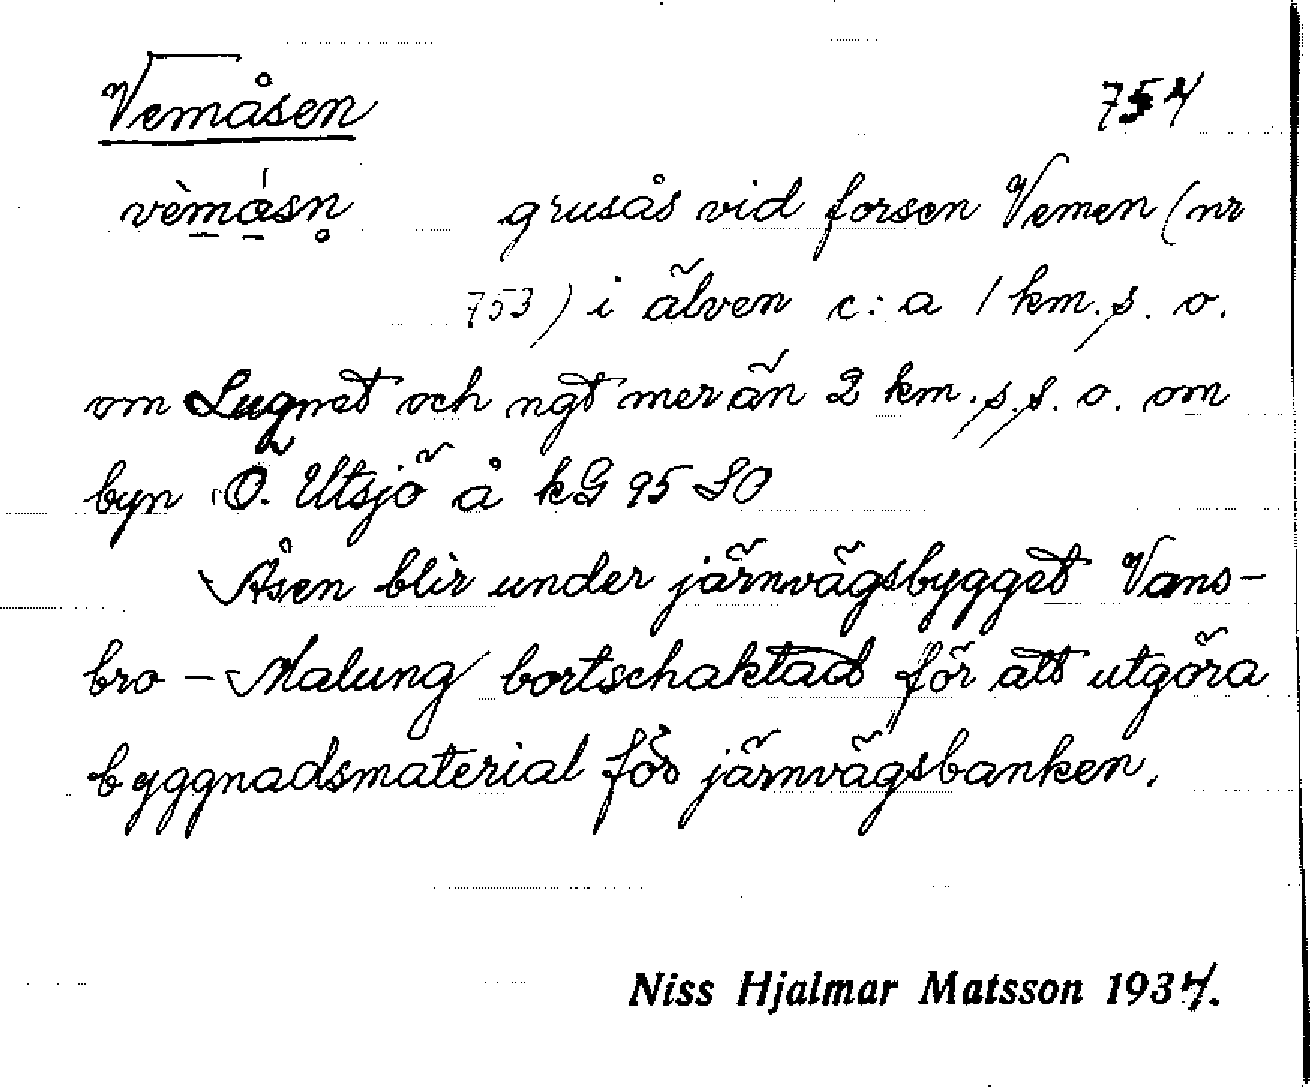 Vemåsen 754
vèmåsn̥ grusås vid forsen Vemen (nr
753) i älven c:a 1 km. s. o.
om Lugnet och ngt mer än 2 km. s. s. o. om
byn Ö. Utsjö å kG 95 SO
Åsen blir under järnvägsbygget Vans-
bro - Malung bortschaktad för att utgöra
byggnadsmaterial för järnvägsbanken.
Niss Hjalmar Matsson 1934.